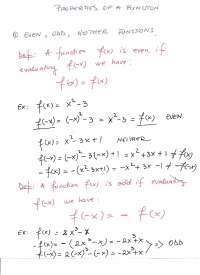 PROPERTIES OF A FUNCTION
① EVEN, ODD, NEITHER FUNCTIONS.
Def: A function f(x) is even if
evaluating f(-x) we have:
f(-x) = f(x)
Ex: f(x) = x² - 3
f(-x) = (-x)² - 3 = x² - 3 = f(x) EVEN
f(x) = x² - 3x + 1 NEITHER
f(-x) = (-x)² - 3(-x) + 1 = x² + 3x + 1 ≠ f(x)
- f(x) = -(x² - 3x + 1) = -x² + 3x - 1 ≠ f(-x)
Def: A function f(x) is odd if evaluating
f(-x) we have:
f(-x) = - f(x)
Ex: f(x) = 2x³ - x
- f(x) = -(2x³ - x) = -2x³ + x
f(-x) = 2(-x)³ - (-x) = -2x³ + x => ODD